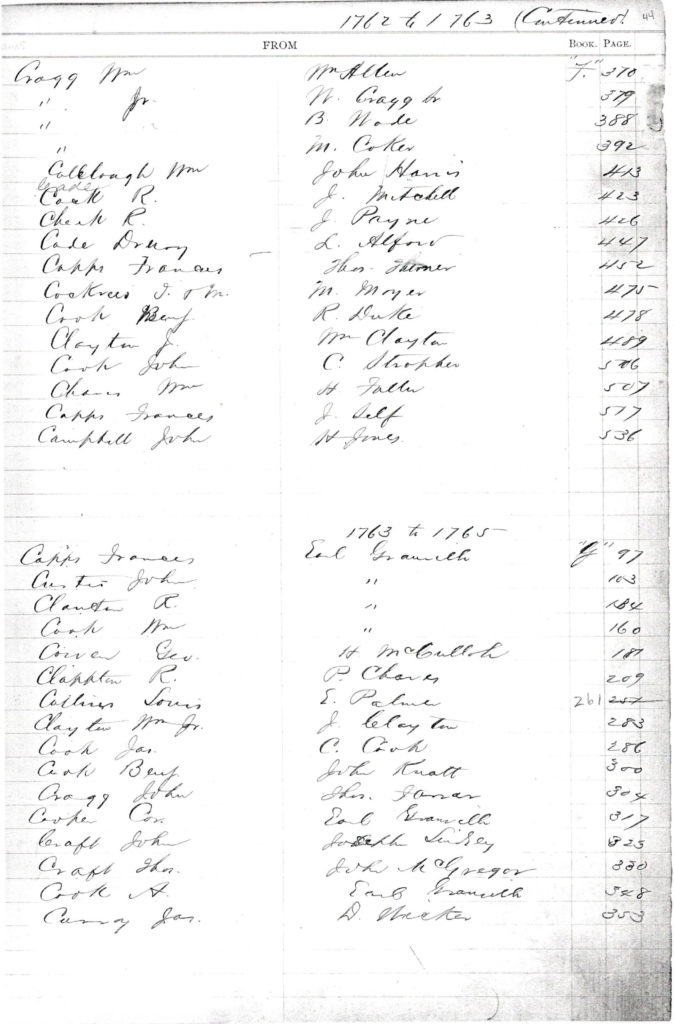 1762 to 1763 (Continued) 44
FROM BOOK. PAGE.
Cragg Wm Wm Allen "F." 370
" Jr. W. Cragg Sr 379
" B. Wade 388
" M. Coker 392
Colclough Wm John Harris 413
Cade
Cook R. J. Mitchell 423
Cheek R. J. Payne 426
Cade Drury L. Alford 447
Capps Frances Thos. Turner 452
Cockrees J. & M. M. Moyer 475
Cook Benj. R. Duke 478
Clayton J. Wm Clayton 489
Cook John C. Stropher 506
Chaves Wm H Fuller 507
Capps Frances J. Self 517
Campbell John H Jones. 536
1763 to 1765
Capps Frances Earl Granville "G" 97
Custis John " 103
Clanton R. " 184
Cook Wm " 160
Cowen Geo. H McCulloh 181
Clappton R. P. Chaves 209
Collins Louis E. Palmer 261 257
Clayton Wm Jr. J. Clayton 283
Cook Jas. C. Cook 286
Cook Benj John Knatt 300
Cragg John Thos. 304
Cooper Cor. Earl Granville 317
Craft John Joseph Lindsey 325
Craft Thos. John McGregor 330
Cook A. Earl Granville 348
Curroy Jas. D. Wicker 353